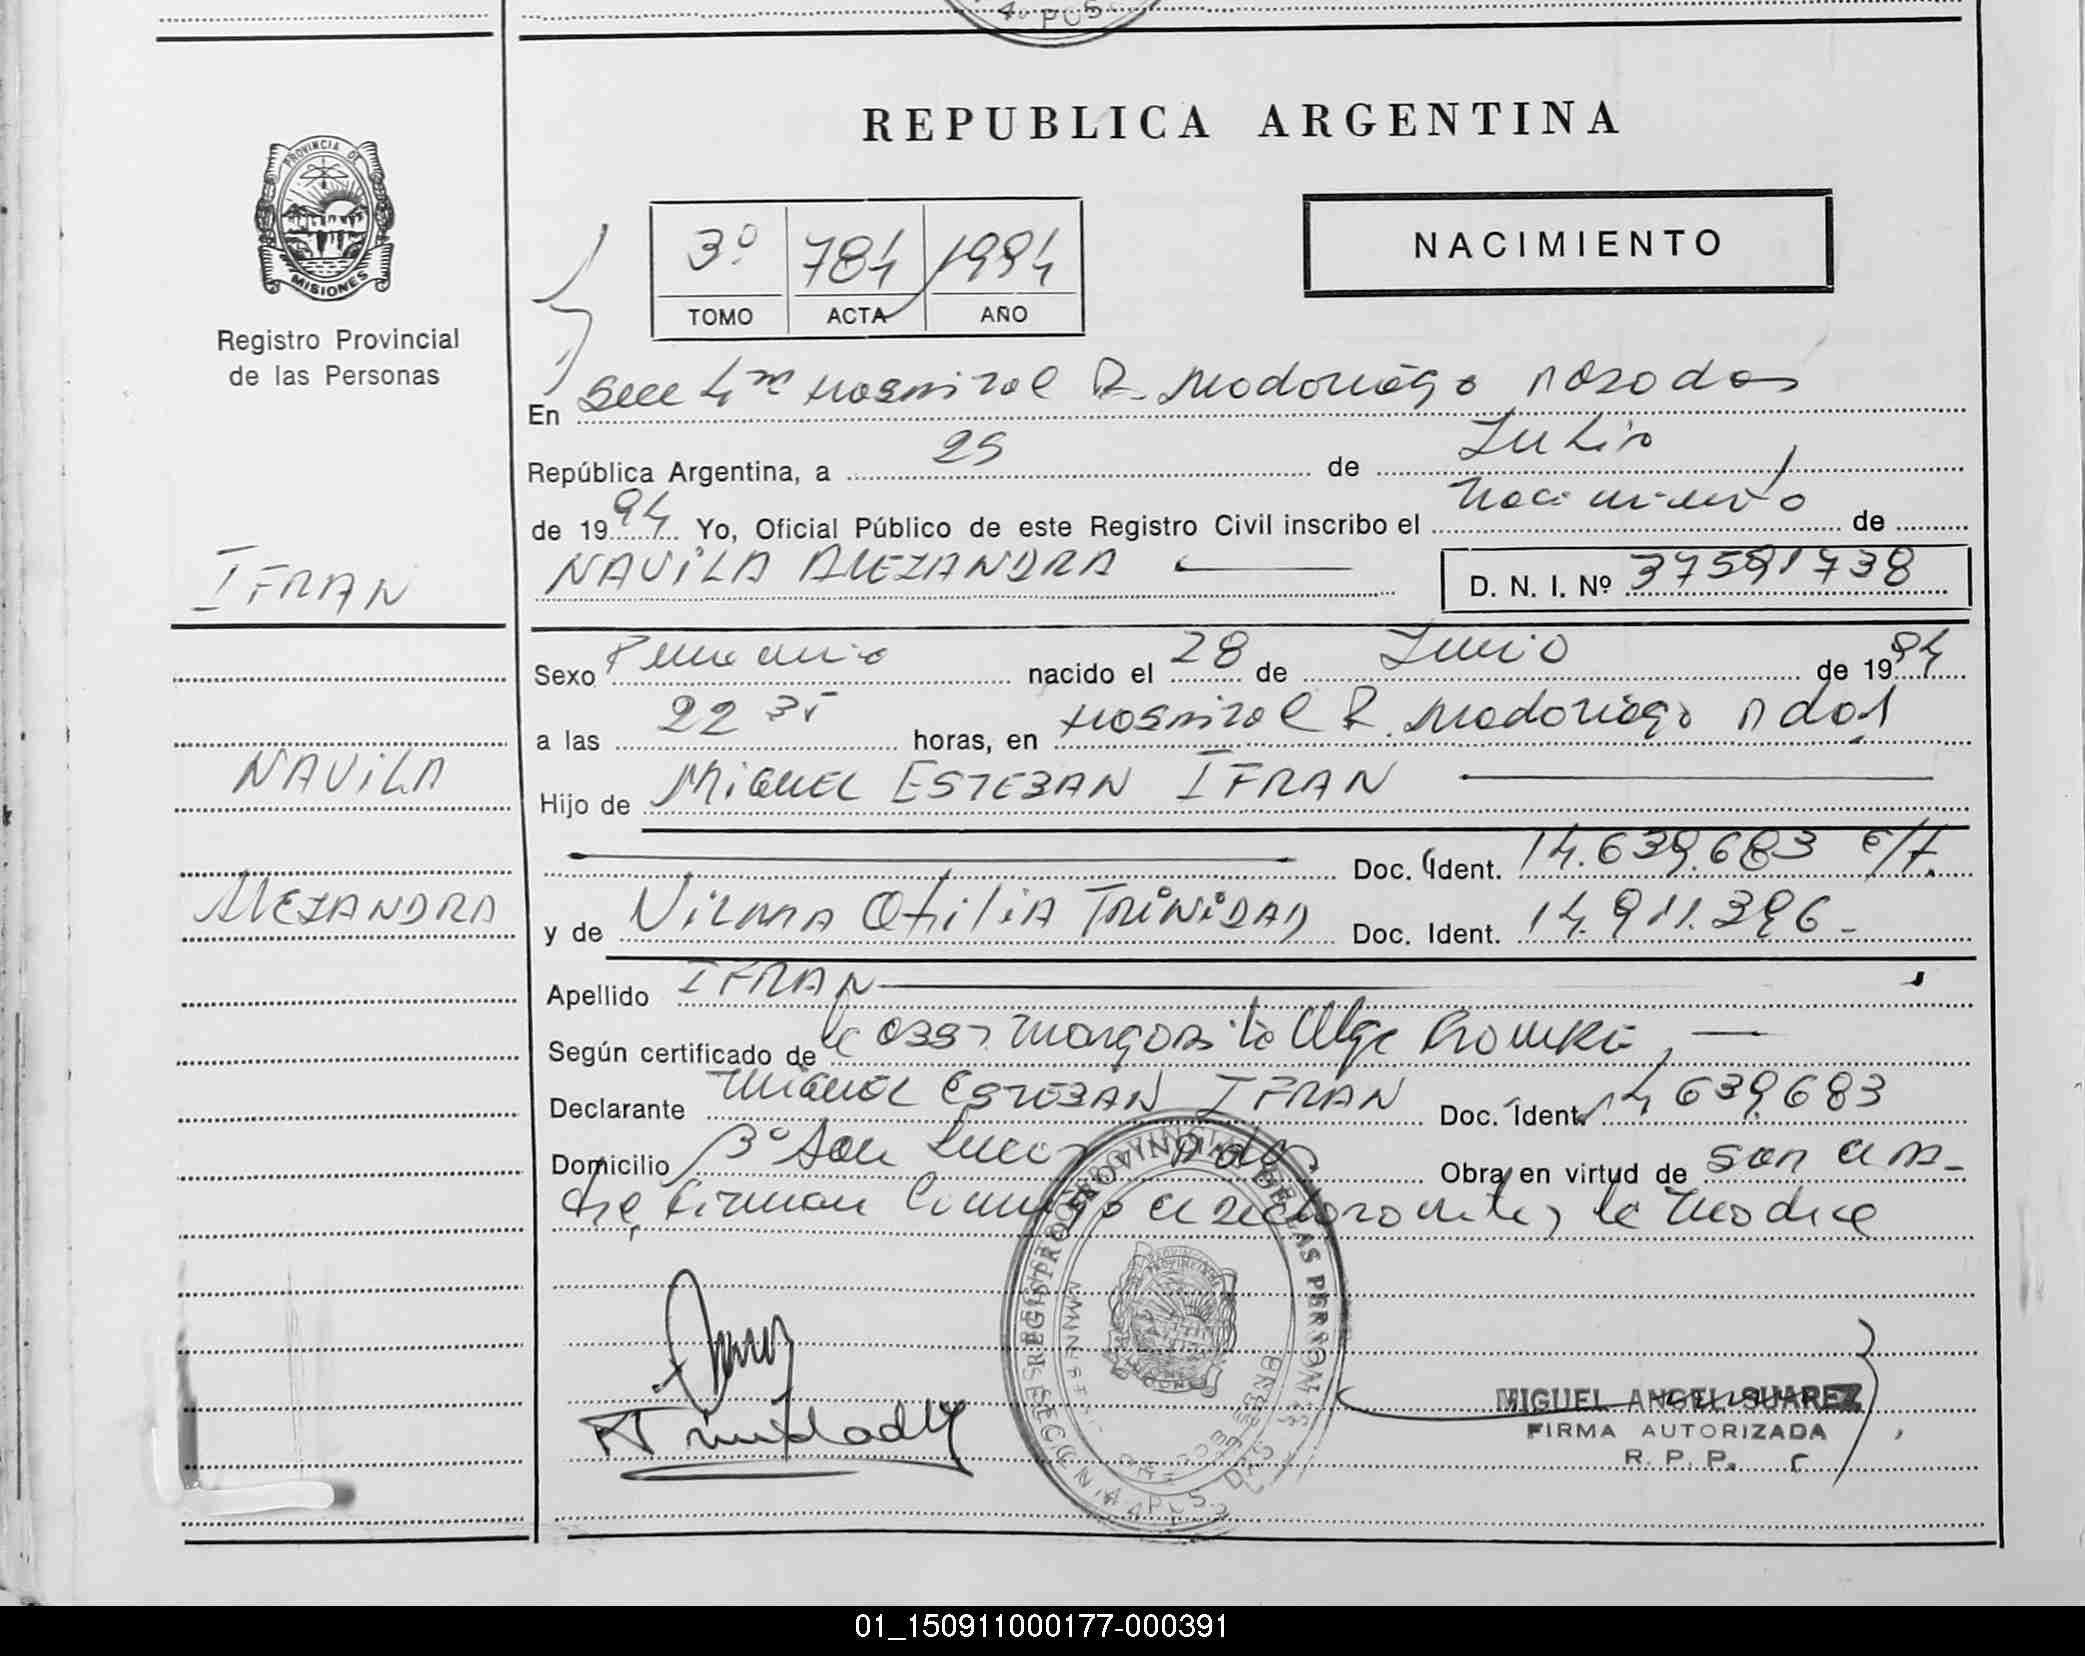 4a PUS.
REPUBLICA ARGENTINA
PROVINCIA DE
MISIONES
Registro Provincial
de las Personas
3º 784 1994
TOMO ACTA AÑO
NACIMIENTO
En Secc 4ta Hospital R. Madariaga Posadas
República Argentina, a 25 de Julio
de 1994 Yo, Oficial Público de este Registro Civil inscribo el Nacimiento de
IFRAN
NAVILA ALEJANDRA D. N. I. Nº 37591738
Sexo Femenino nacido el 28 de Junio de 1994
a las 22 35 horas, en Hospital R. Madariaga Pdas
NAVILA
Hijo de MIGUEL ESTEBAN IFRAN
Doc. Ident. 14.639.683 e/f.
ALEJANDRA
y de VILMA OfiLiA TRiNiDAD Doc. Ident. 14.911.396
Apellido IFRAN
Según certificado de la Obst. Margarita Olga
Declarante MIGUEL ESTEBAN IFRAN Doc. Ident. 14 639683
Domicilio Bº San Lucas Pdas Obra en virtud de son am-
bos, firman conmigo el declarante y la madre
REGISTRO PROVINCIAL DE LAS PERSONAS
MIGUEL ANGEL SUAREZ
FIRMA AUTORIZADA
R. P. P.
01_150911000177-000391